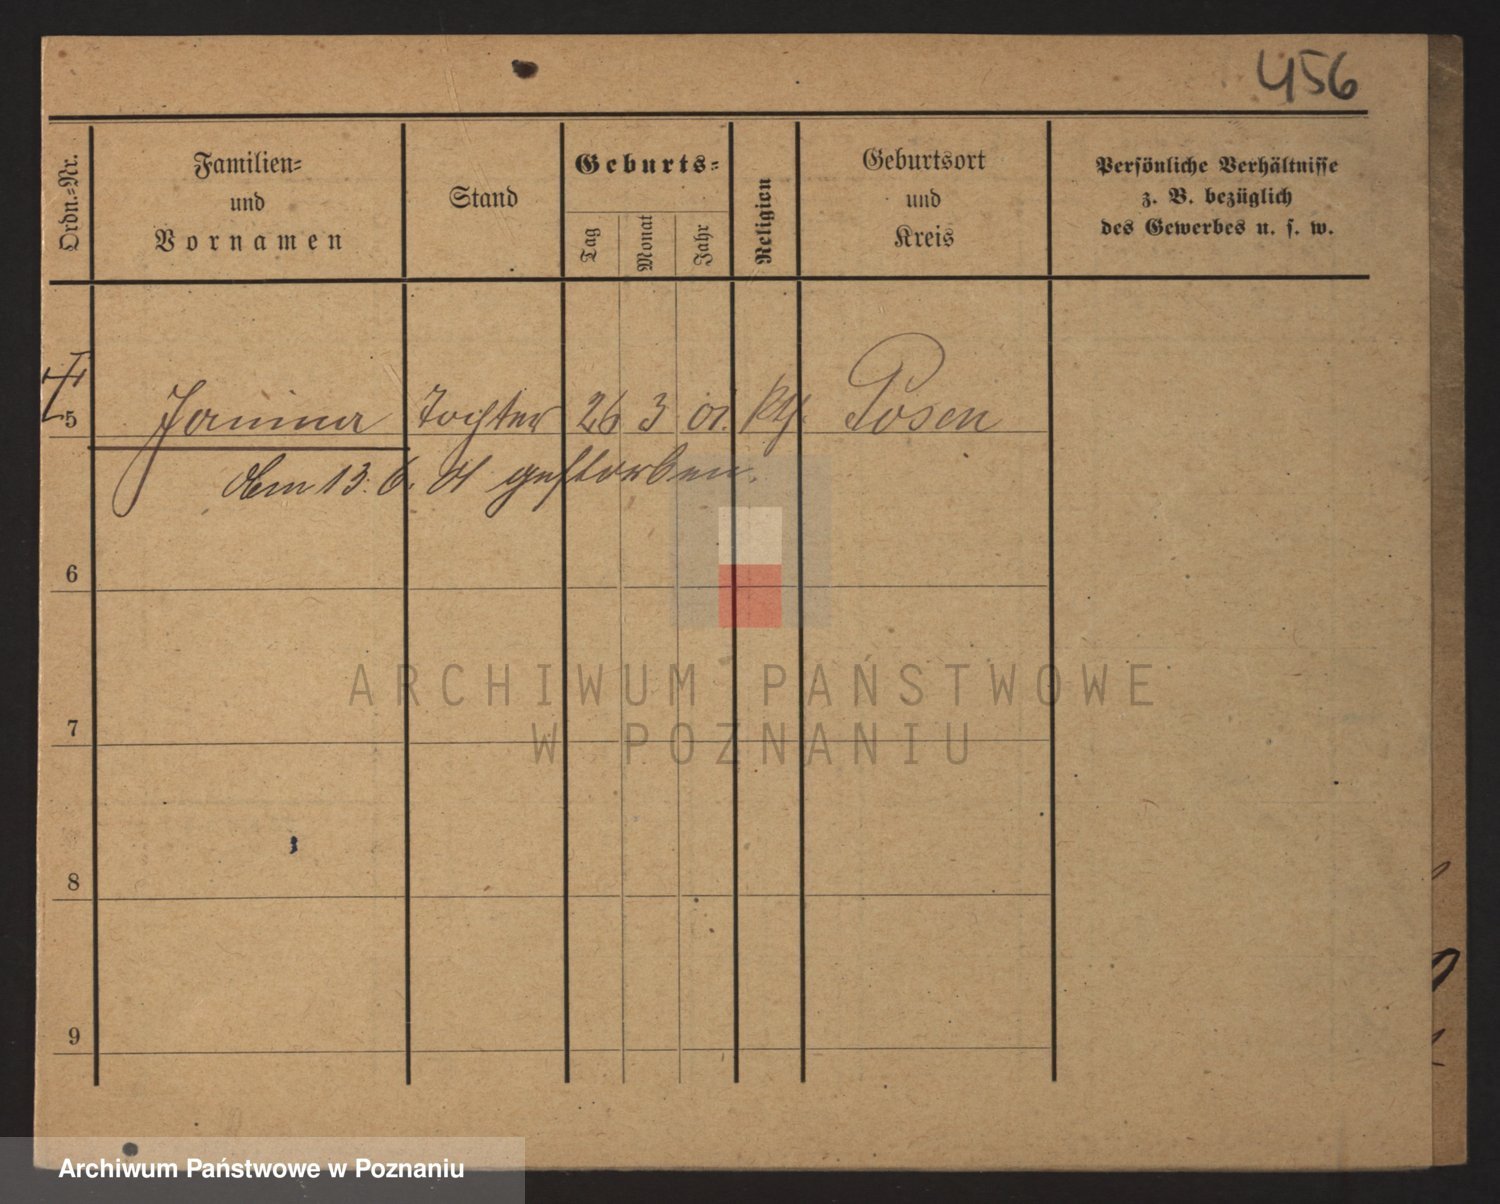 456
Ordn.=Nr.
Familien=
und
Vornamen
Stand
Geburts=
Tag
Monat
Jahr
Religion
Geburtsort
und
Kreis
Persönliche Verhältnisse
z. B. bezüglich
des Gewerbes u. s. w.
5 Janina Tochter 26 3 01. kth. Posen
Am 13. 6. 01 gestorben.
6
7
8
9
ARCHIWUM PAŃSTWOWE
W POZNANIU
Archiwum Państwowe w Poznaniu